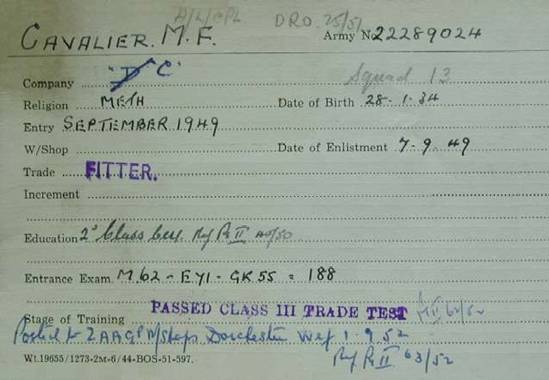 A/L/CPL DRO. 25/51
CAVALIER. M. F. Army No 22289024
Company "D" "C" Squad 13
Religion METH Date of Birth 28. 1. 34
Entry SEPTEMBER 1949
W/Shop Date of Enlistment 7-9.49
Trade FITTER.
Increment
Education 2nd Class Cert. Pt II 40/50
Entrance Exam. M.62 - EY1 - GK 55 = 188
Stage of Training PASSED CLASS III TRADE TEST Pt II 62/52
Posted to 2 AA GP W/Shops Dorchester wef 1.9.52
Pt II 63/52
Wt.19655/1273-2M-6/44-BOS-51-597.